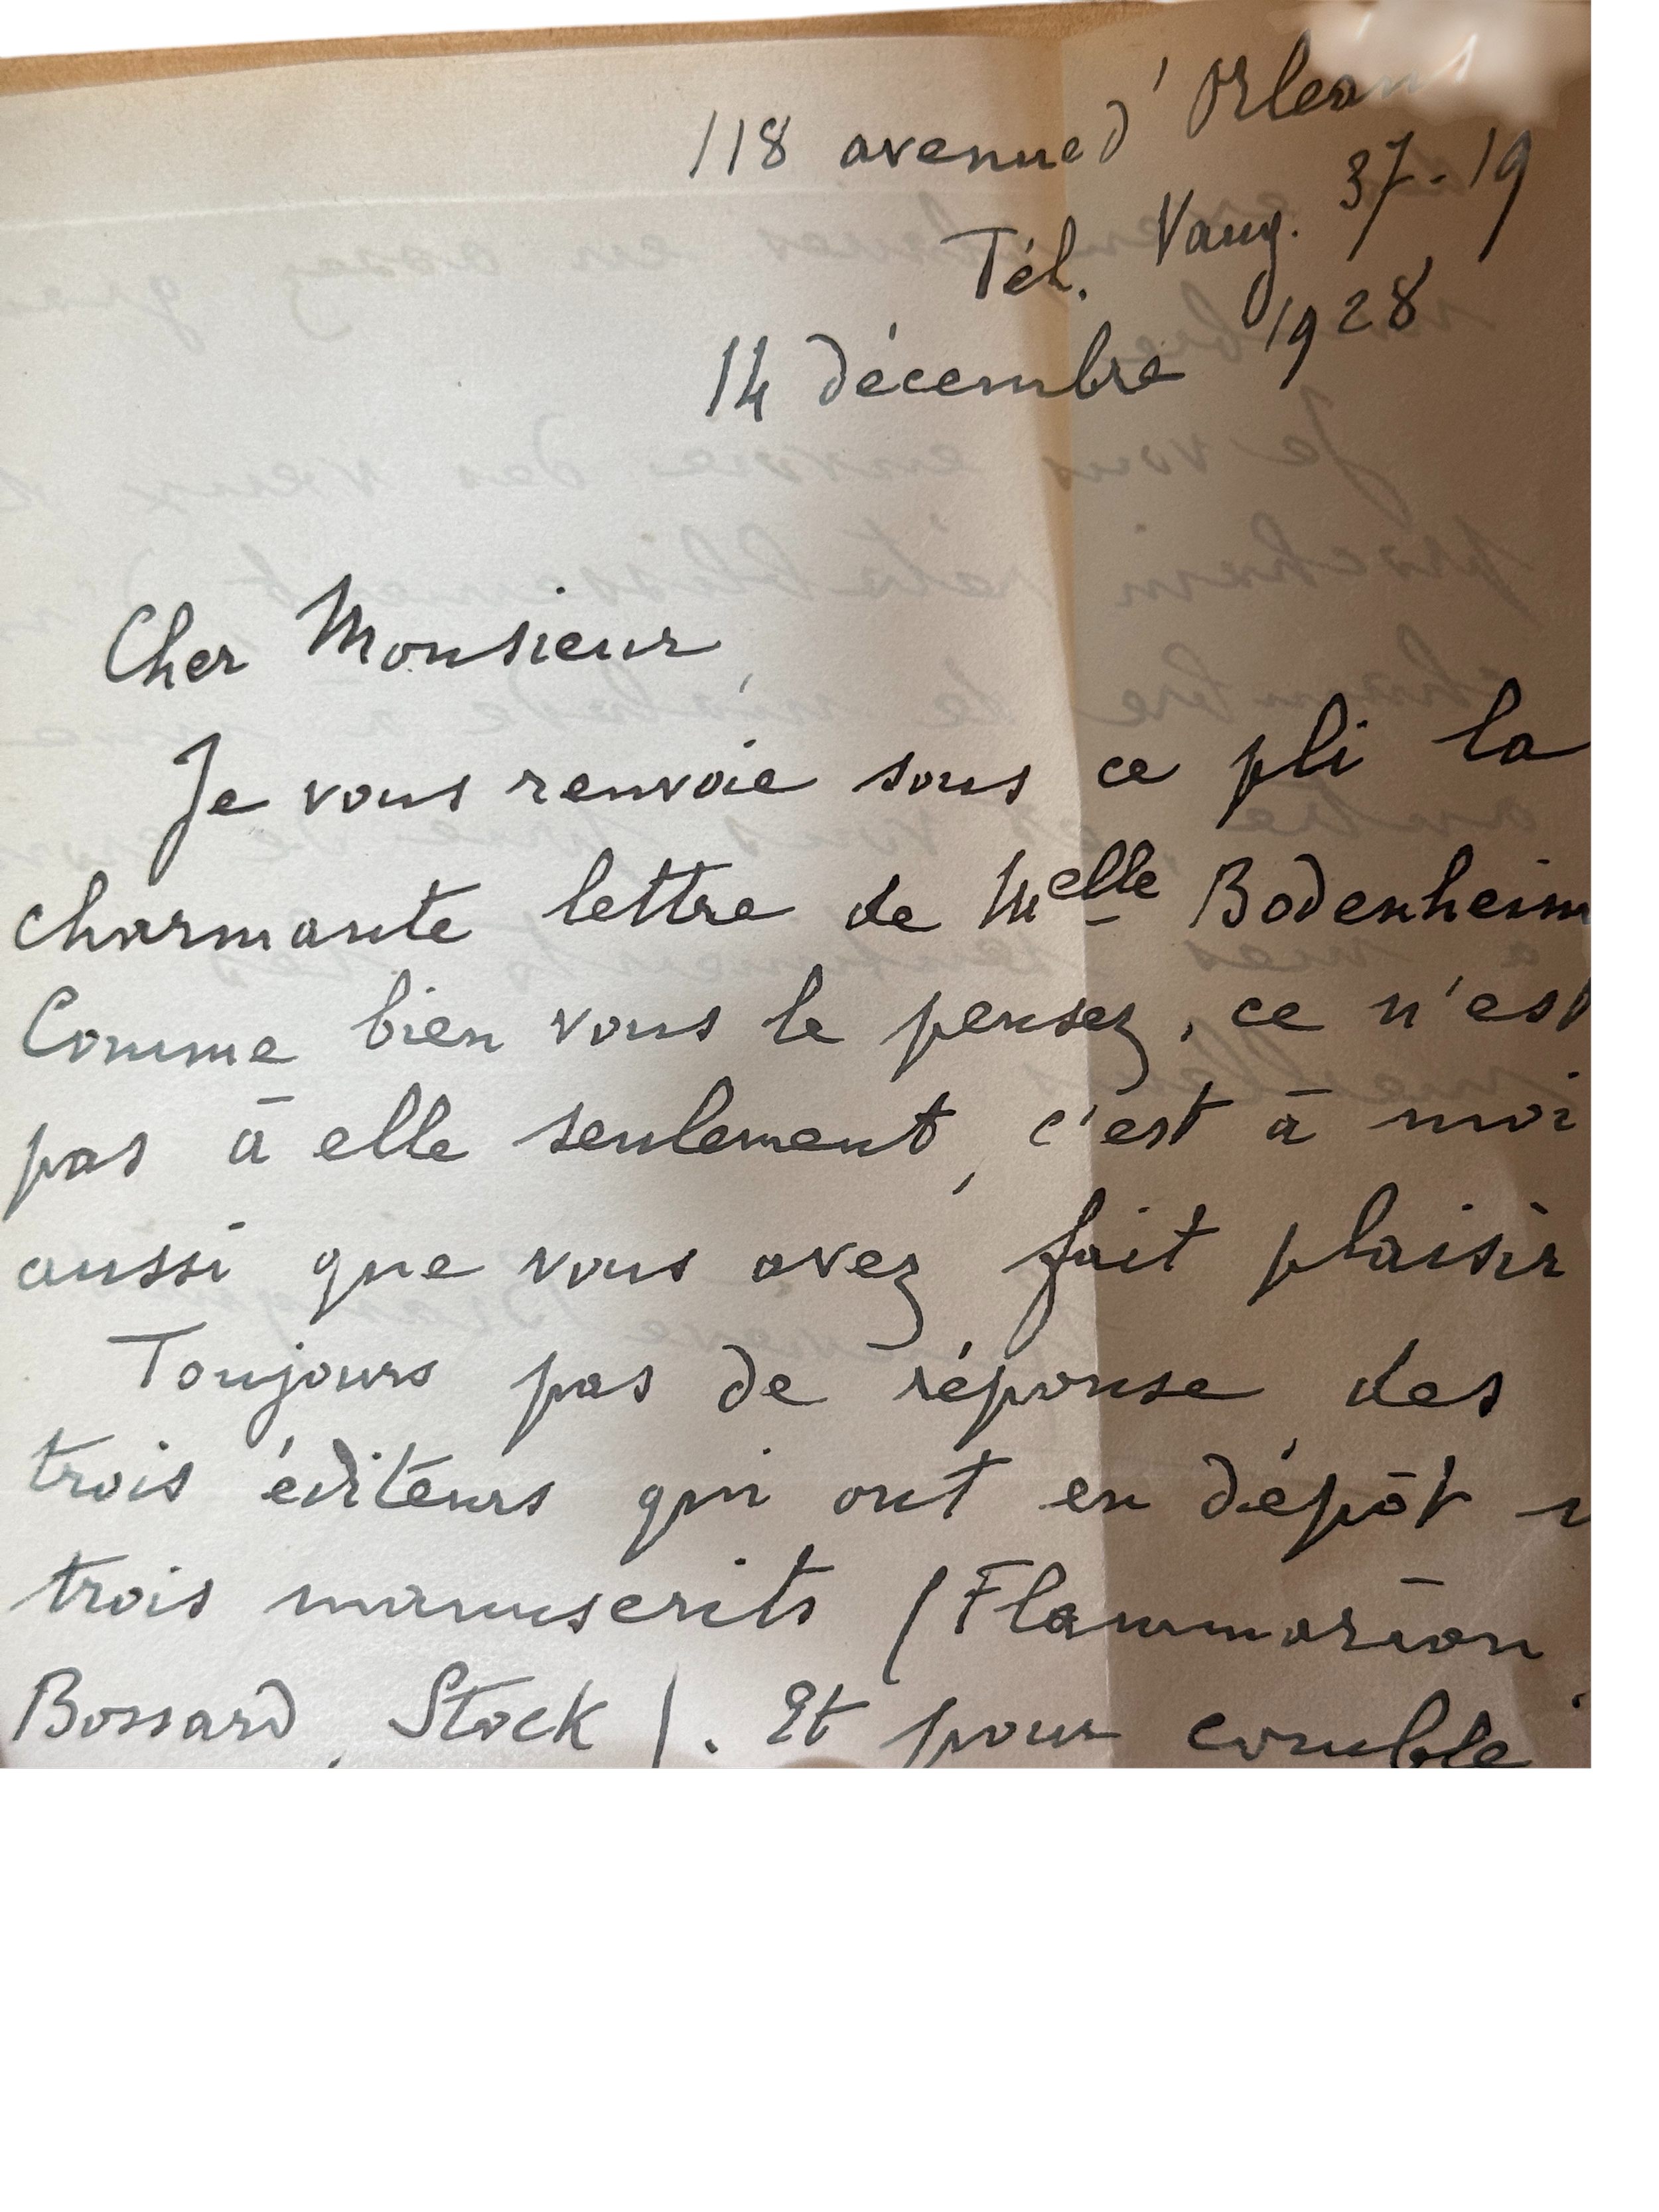 118 avenue d'Orléans
Tél. Vaug. 37-19
14 décembre 1928
Cher Monsieur,
Je vous renvoie sous ce pli la
charmante lettre de Melle Bodenheim
Comme bien vous le pensez, ce n'est
pas à elle seulement, c'est à moi
aussi que vous avez fait plaisir
Toujours pas de réponse des
trois éditeurs qui ont en dépôt
trois manuscrits (Flammarion
Bossard, Stock). Et pour comble